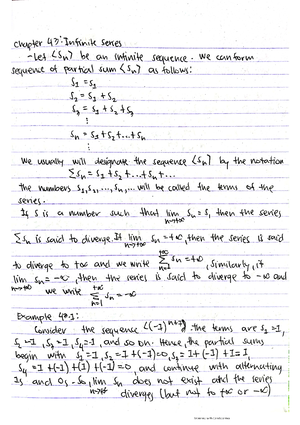 Chapter 4?: Infinite Series
-Let {Sn} be an infinite sequence. We can form
sequence of partial sum {Sn} as follows:
S1 = S1
S2 = S1 + S2
S3 = S1 + S2 + S3
⋮
Sn = S1 + S2 + ... + Sn
⋮
We usually will designate the sequence {Sn} by the notation
ΣSn = S1 + S2 + ... + Sn + ...
The numbers S1, S2, ..., Sn, ... will be called the terms of the
series.
If S is a number such that lim n→+∞ Sn = S, then the series
ΣSn is said to diverge. If lim n→+∞ Sn = +∞, then the series is said
to diverge to +∞ and we write +∞ Σ n=1 Sn = +∞. Similarly, if
lim n→+∞ Sn = -∞, then the series is said to diverge to -∞ and
we write +∞ Σ n=1 Sn = -∞
Example 1:
Consider the sequence {(-1)^n+1}. The terms are S1 = 1,
S2 = -1, S3 = 1, S4 = -1, and so on. Hence, the partial sums
begin with S1 = 1, S2 = 1 + (-1) = 0, S3 = 1 + (-1) + 1 = 1,
S4 = 1 + (-1) + (1) + (-1) = 0, and continue with alternating
1s and 0s. So, lim n→+∞ Sn does not exist and the series
diverges (but not to +∞ or -∞)